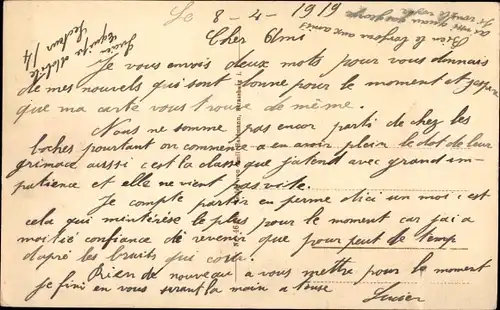 Le 8 - 4 - 1919
Cher Ami
Je vous envois deux mots pour vous donnais
de mes nouvels qui sont bonne pour le moment et j'espere
que ma carte vous trouve de même.
Nous ne somme pas encor parti de chez les
boches pourtant on commence a en avoir plein le dot de leur
grimace aussi c'est la classe que j'atend avec grand im-
patience et elle ne vient pas vite.
Je compte partir en perme d'ici un mois c'est
cela qui m'intérèse le plus pour le moment car j'ai a
moitié confiance de revenir que pour peut de temp
d'apré les bruits qui cour.
Rien de nouveau a vous mettre pour le moment
je fini en vous serant la main a tous
Lucien